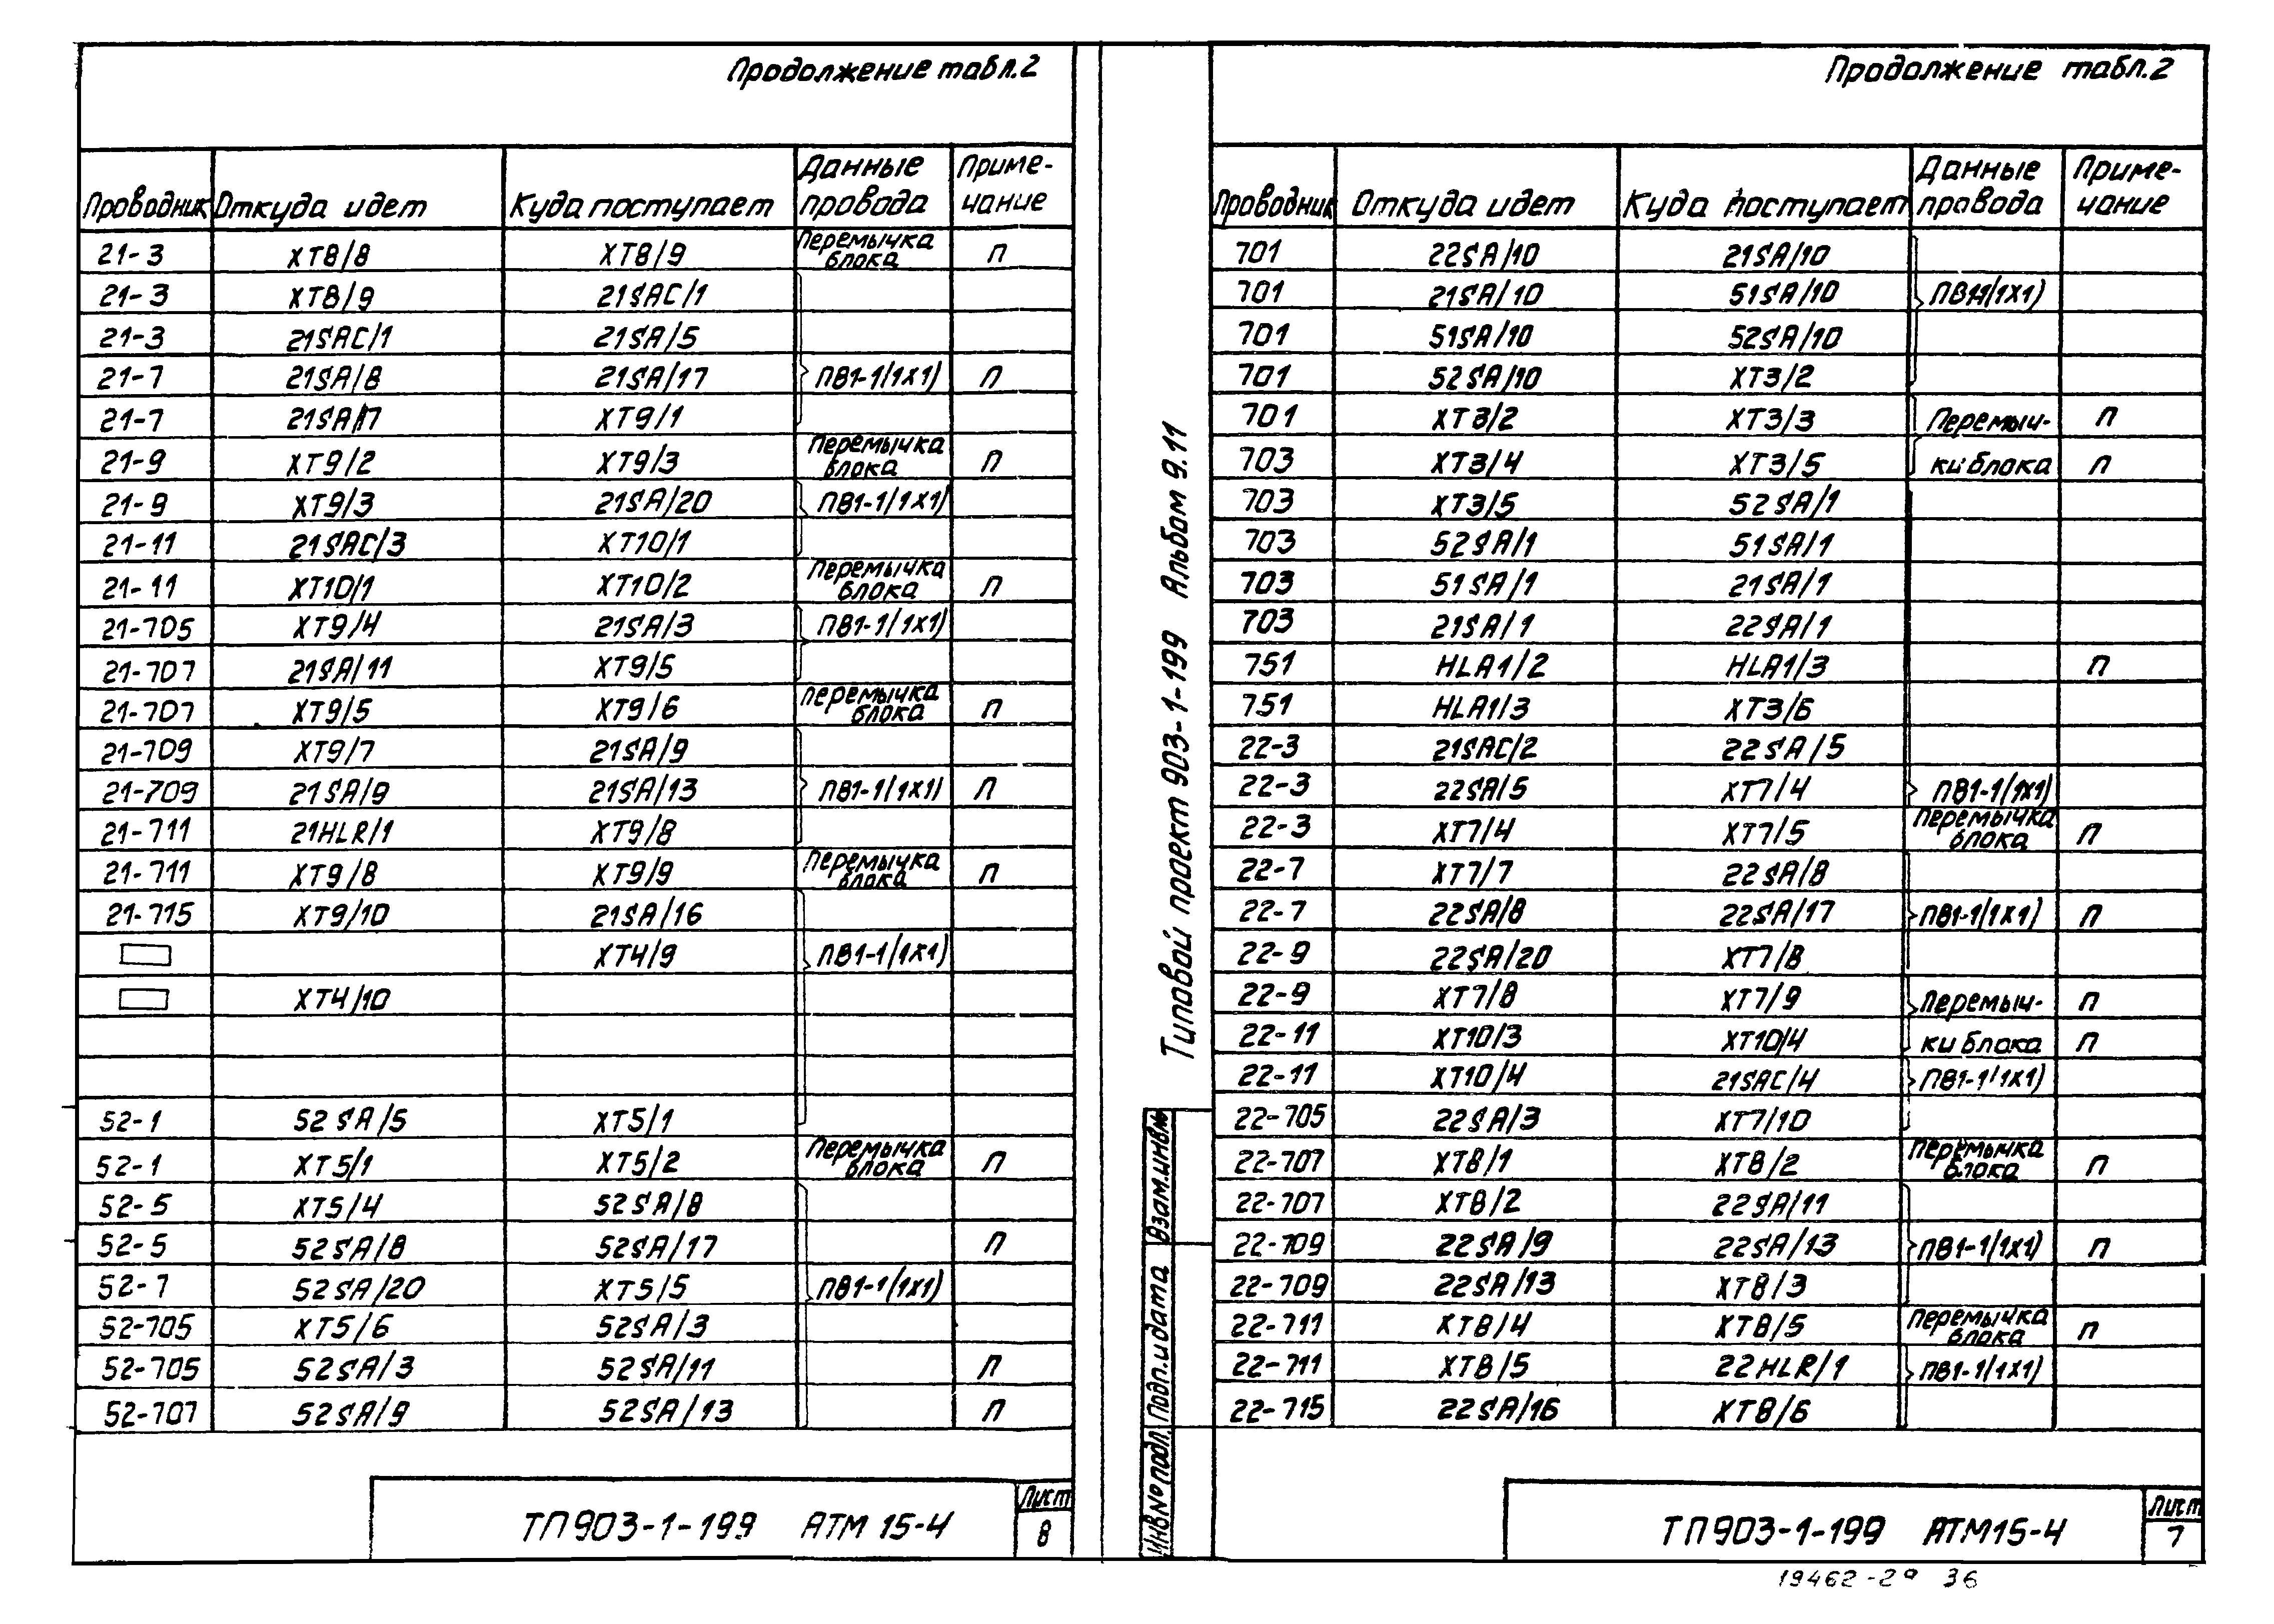 Продолжение табл.2
Проводник Откуда идет Куда поступает Данные провода Примечание
21-3 XT8/8 XT8/9 Перемычка блока П
21-3 XT8/9 21SAC/1
21-3 21SAC/1 21SA/5
21-7 21SA/8 21SA/17 ПВ1-1(1х1) П
21-7 21SA/17 XT9/1
21-9 XT9/2 XT9/3 Перемычка блока П
21-9 XT9/3 21SA/20 ПВ1-1(1х1)
21-11 21SAC/3 XT10/1
21-11 XT10/1 XT10/2 Перемычка блока П
21-705 XT9/4 21SA/3 ПВ1-1(1х1)
21-707 21SA/11 XT9/5
21-707 XT9/5 XT9/6 перемычка блока П
21-709 XT9/7 21SA/9
21-709 21SA/9 21SA/13 ПВ1-1(1х1) П
21-711 21HLR/1 XT9/8
21-711 XT9/8 XT9/9 Перемычка блока П
21-715 XT9/10 21SA/16
XT4/9 ПВ1-1(1х1)
XT4/10
52-1 52SA/5 XT5/1
52-1 XT5/1 XT5/2 Перемычка блока П
52-5 XT5/4 52SA/8
52-5 52SA/8 52SA/17 П
52-7 52SA/20 XT5/5 ПВ1-1(1х1)
52-705 XT5/6 52SA/3
52-705 52SA/3 52SA/11 П
52-707 52SA/9 52SA/13 П
ТП903-1-199 АТМ 15-4
Лист
8
Типовой проект 903-1-199 Альбом 9.11
Инв№подл. Подп.и дата Взам.инв№
Продолжение табл.2
Проводник Откуда идет Куда поступает Данные провода Примечание
701 22SA/10 21SA/10
701 21SA/10 51SA/10 ПВ1-1(1х1)
701 51SA/10 52SA/10
701 52SA/10 XT3/2
701 XT3/2 XT3/3 Перемыч- П
703 XT3/4 XT3/5 ки блока П
703 XT3/5 52SA/1
703 52SA/1 51SA/1
703 51SA/1 21SA/1
703 21SA/1 22SA/1
751 HLA1/2 HLA1/3 П
751 HLA1/3 XT3/6
22-3 21SAC/2 22SA/5
22-3 22SA/5 XT7/4 ПВ1-1(1х1)
22-3 XT7/4 XT7/5 Перемычка блока П
22-7 XT7/7 22SA/8
22-7 22SA/8 22SA/17 ПВ1-1(1х1) П
22-9 22SA/20 XT7/8
22-9 XT7/8 XT7/9 Перемыч- П
22-11 XT10/3 XT10/4 ки блока П
22-11 XT10/4 21SAC/4 ПВ1-1(1х1)
22-705 22SA/3 XT7/10
22-707 XT8/1 XT8/2 Перемычка блока П
22-707 XT8/2 22SA/11
22-709 22SA/9 22SA/13 ПВ1-1(1х1) П
22-709 22SA/13 XT8/3
22-711 XT8/4 XT8/5 Перемычка блока П
22-711 XT8/5 22HLR/1 ПВ1-1(1х1)
22-715 22SA/16 XT8/6
ТП903-1-199 АТМ15-4
Лист
7
19462-29 36